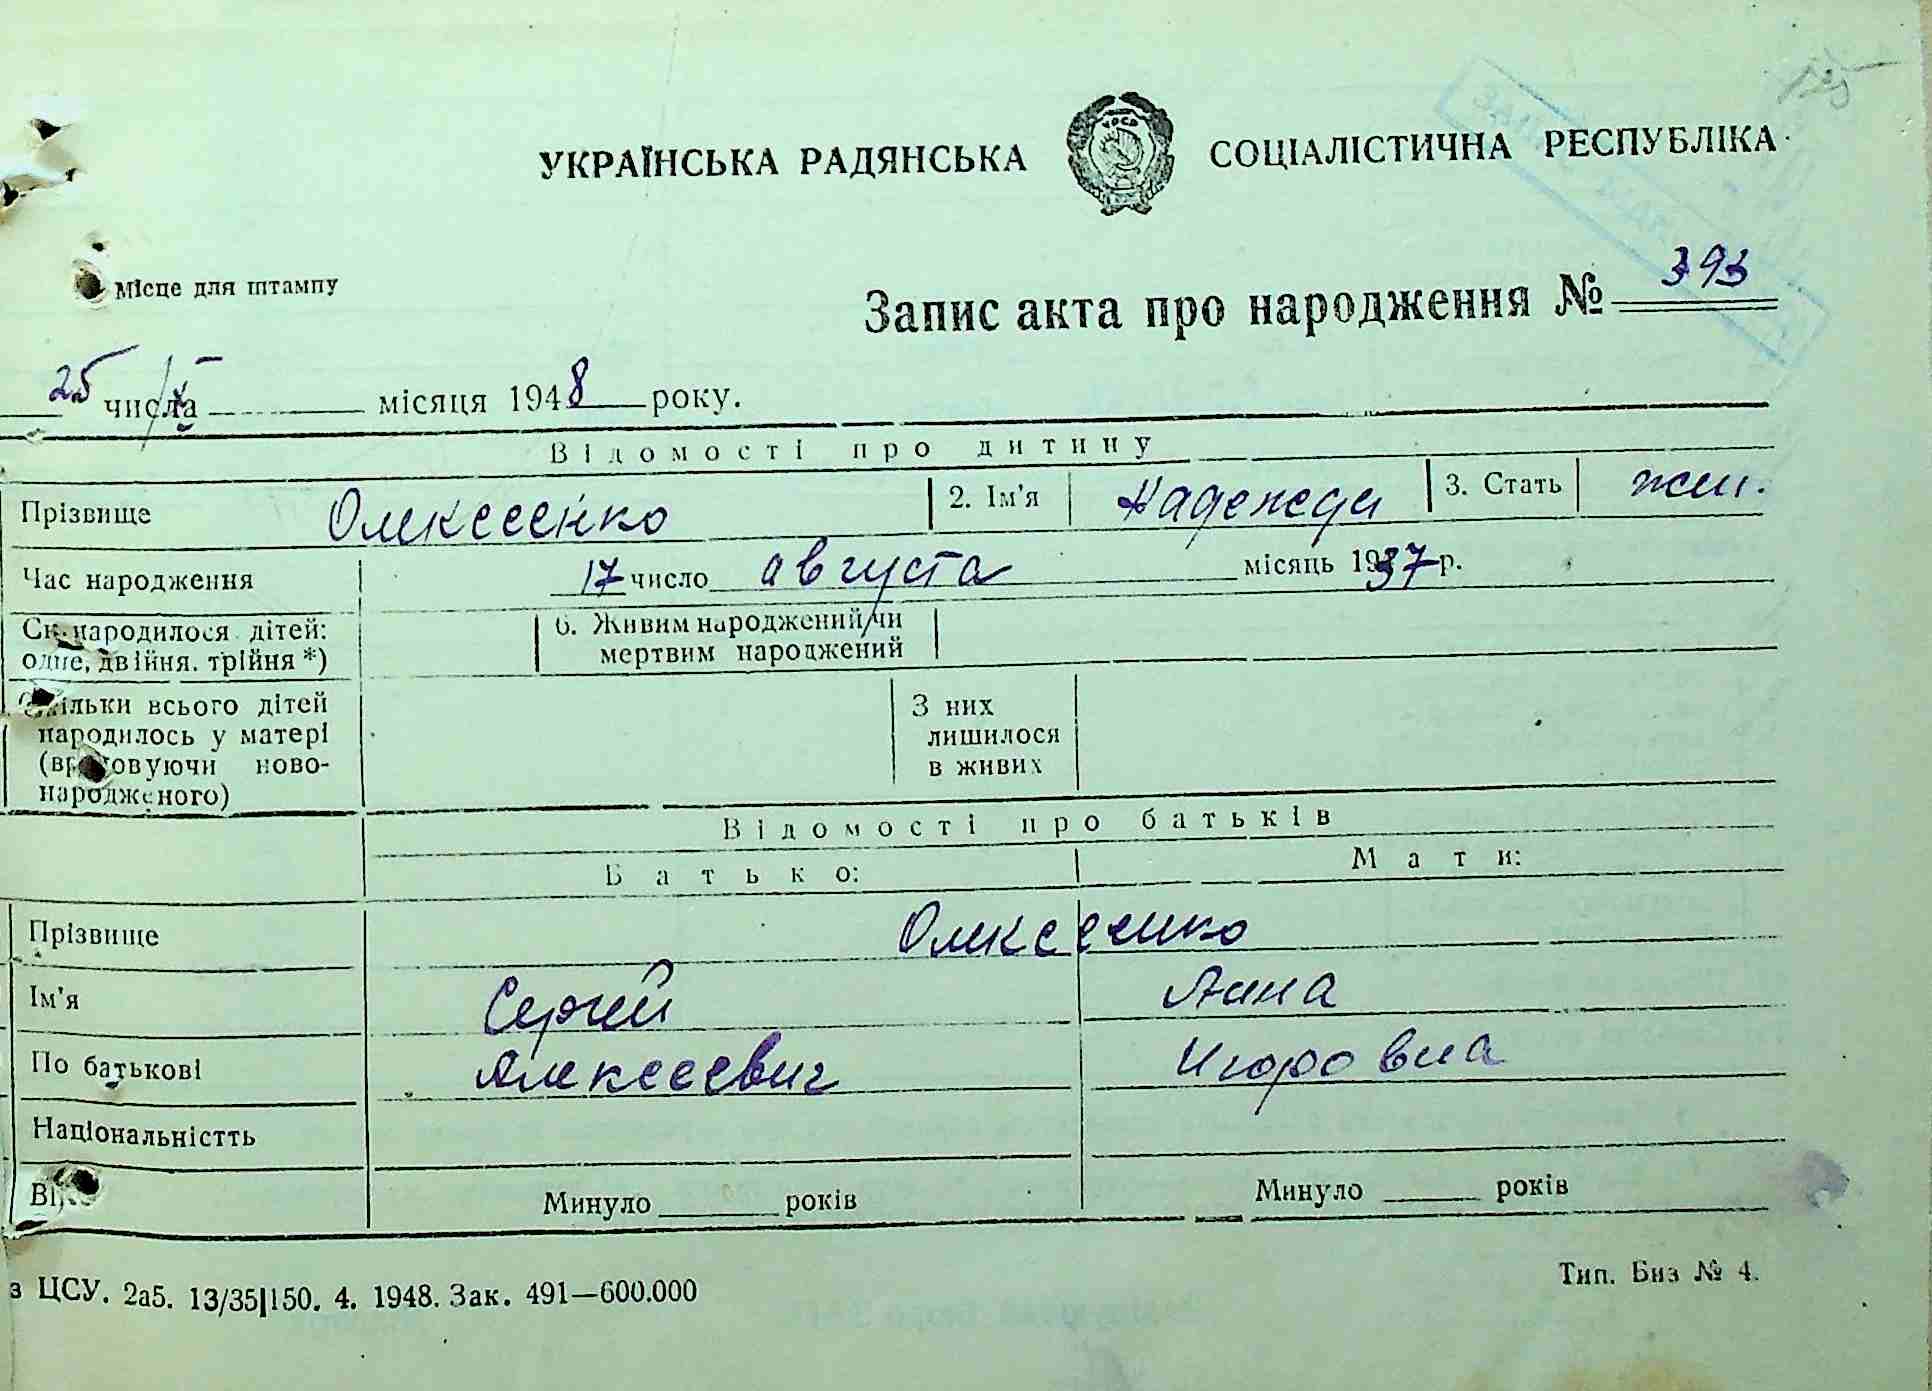 125
УКРАЇНСЬКА РАДЯНСЬКА СОЦІАЛІСТИЧНА РЕСПУБЛІКА
УРСР
Місце для штампу
Запис акта про народження № 393
25 числа X місяця 1948 року.
Відомості про дитину
Прізвище Олексеенко 2. Ім'я Надежда 3. Стать жен.
Час народження 17 число августа місяць 1937 р.
Ск. народилося дітей: 6. Живим народжений чи
одне, двійня. трійня *) мертвим народжений
Скільки всього дітей З них
народилось у матері лишилося
(враховуючи ново- в живих
народженого)
Відомості про батьків
Батько: Мати:
Прізвище Олексеенко
Ім'я Сергей Анна
По батькові Алексеевич Игоровна
Національністть
Вік Минуло років Минуло років
з ЦСУ. 2а5. 13/35|150. 4. 1948. Зак. 491—600.000 Тип. Биз № 4.